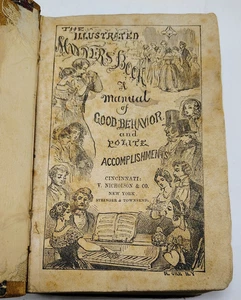 THE
ILLUSTRATED
MANNERS BOOK
A
manual
of
GOOD BEHAVIOR
and
POLITE
ACCOMPLISHMENTS
CINCINNATI:
V. NICHOLSON & CO.
NEW YORK
STRINGER & TOWNSEND.